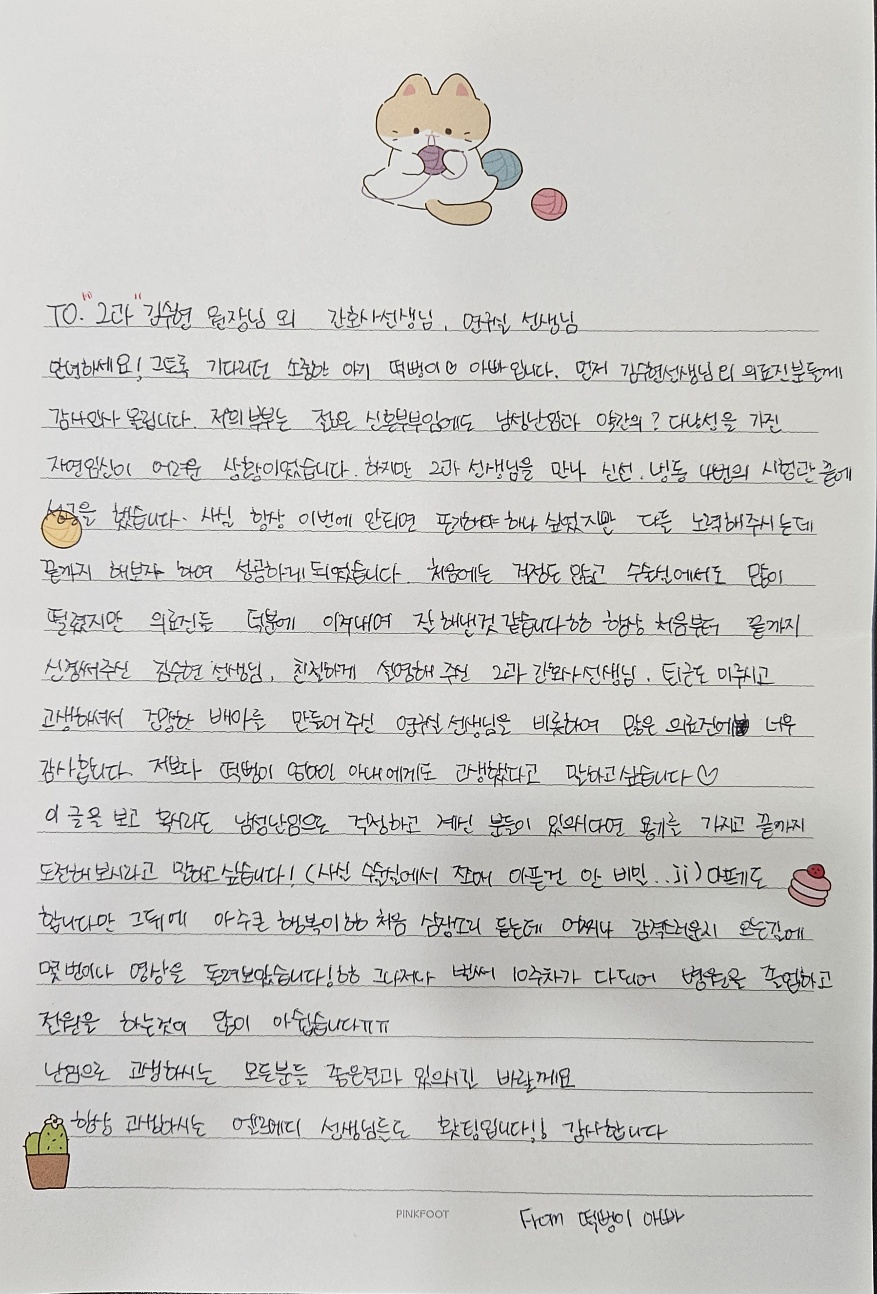 TO. "2과" 김수현 원장님 외 간호사선생님, 연구실 선생님
안녕하세요! 그토록 기다리던 소중한 아기 떡벙이♡ 아빠입니다. 먼저 김수현선생님 외 의료진분들께
감사인사 올립니다. 저희부부는 젊은 신혼부부임에도 남성난임과 약간의? 다낭성을 가진
자연임신이 어려운 상황이었습니다. 하지만 2과 선생님을 만나 신선, 냉동 4번의 시험관 끝에
성공을 했습니다. 사실 항상 이번에 안되면 포기해야 하나 싶었지만 다들 노력해주시는데
끝까지 해보자 하여 성공하게되었습니다. 처음에는 걱정도 많고 수술실에서도 많이
떨렸지만 의료진들 덕분에 이겨내어 잘 해낸것 같습니다ㅎㅎ 항상 처음부터 끝까지
신경써주신 김수현 선생님, 친절하게 설명해 주신 2과 간호사선생님, 퇴근도 미루시고
고생하셔서 건강한 배아를 만들어 주신 연구실 선생님을 비롯하여 많은 의료진에 너무
감사합니다. 저보다 떡벙이 엄마인 아내에게도 고생했다고 말하고싶습니다♡
이 글을 보고 혹시라도 남성난임으로 걱정하고 계신 분들이 있으시다면 용기를 가지고 끝까지
도전해보시라고 말하고싶습니다! (사실 수술실에서 쪼매 아픈건 안 비밀..ㅠㅠ) 아프기도
합니다만 그뒤에 아주큰 행복이ㅎㅎ 처음 심장소리 듣는데 어찌나 감격스러운지 오는길에
몇번이나 영상을 돌려보았습니다!ㅎㅎ 그나저나 벌써 10주차가 다되어 병원을 졸업하고
전원을 하는것이 많이 아쉽습니다ㅠㅠ
난임으로 고생하시는 모든분들 좋은결과 있으시길 바랄께요
항상 고생하시는 엘르메디 선생님들도 홧팅입니다!! 감사합니다
PINKFOOT
From 떡벙이 아빠